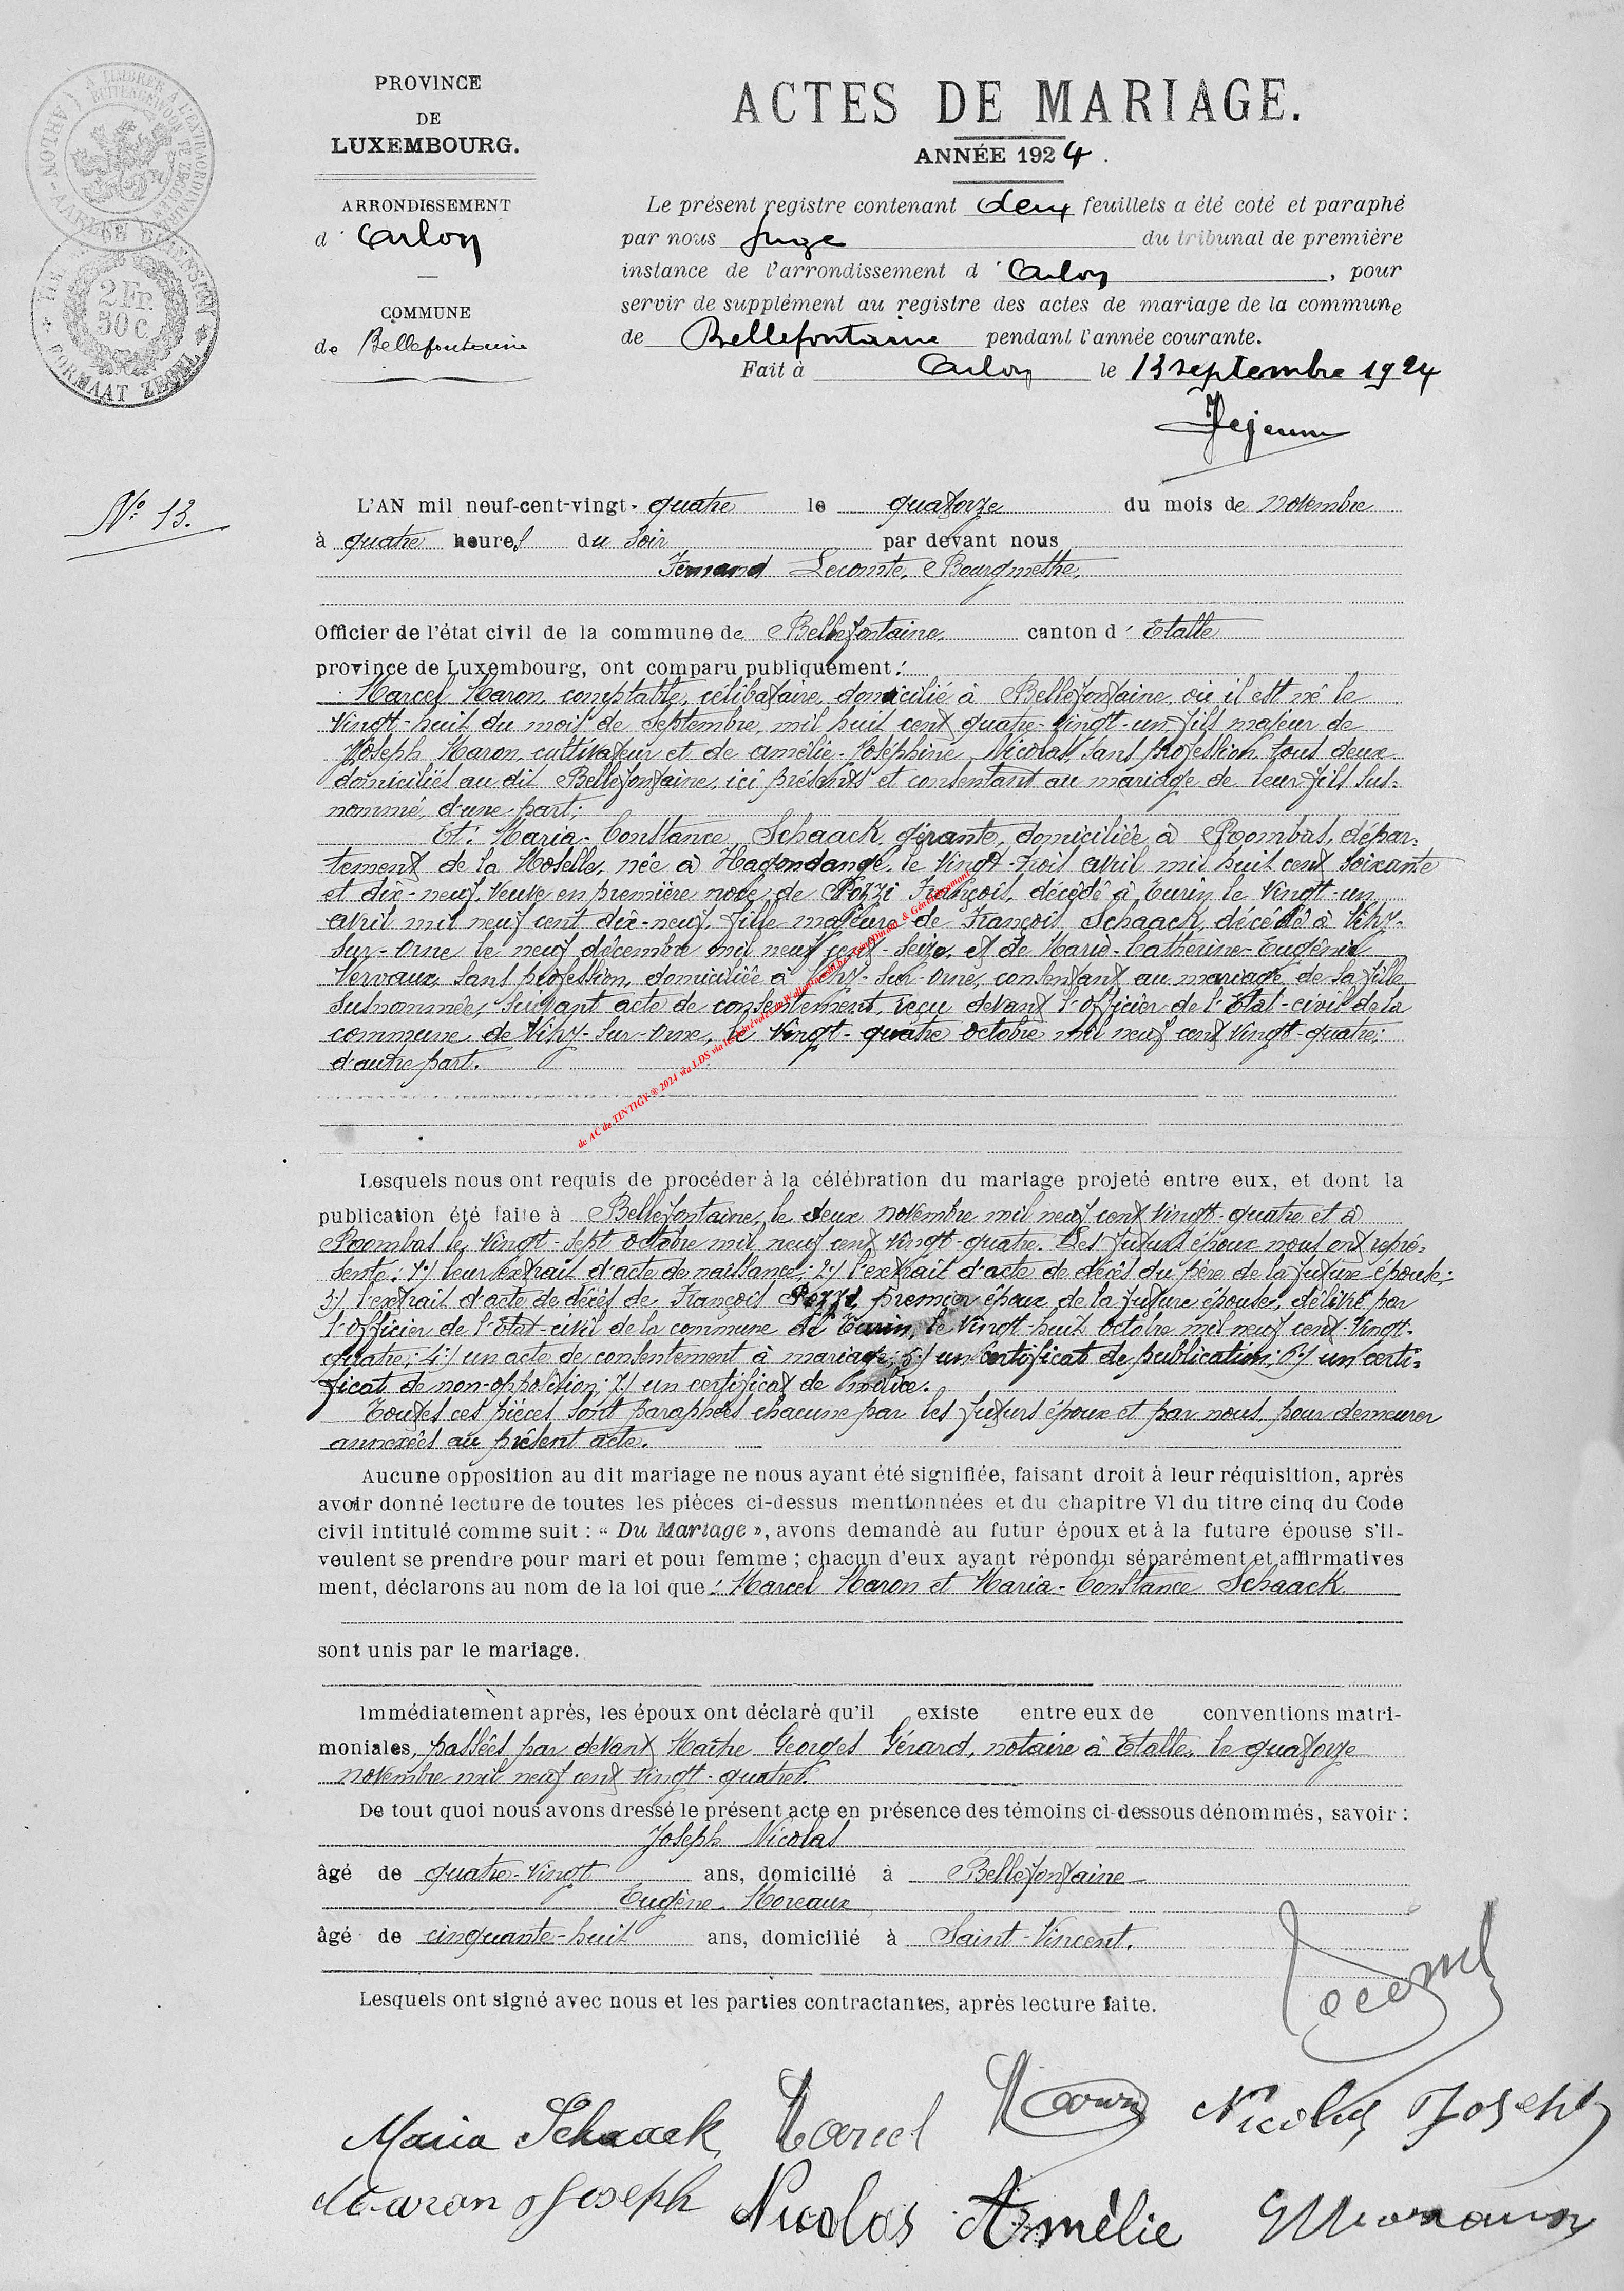 PROVINCE
DE
LUXEMBOURG.
ARRONDISSEMENT
d' Arlon
COMMUNE
de Bellefontaine
2 Fr.
50 C.
FORMAAT ZEGEL
ACTES DE MARIAGE.
ANNÉE 1924.
Le présent registre contenant deux feuillets a été coté et paraphé
par nous Juge du tribunal de première
instance de l'arrondissement d'Arlon, pour
servir de supplément au registre des actes de mariage de la commune
de Bellefontaine pendant l'année courante.
Fait à Arlon le 13 septembre 1924
N° 13.
L'AN mil neuf-cent-vingt-quatre le quatorze du mois de novembre
à quatre heures du soir par devant nous
Fernand Lecomte, Bourgmestre,
Officier de l'état civil de la commune de Bellefontaine, canton d'Etalle
province de Luxembourg, ont comparu publiquement :
Marcel Maron, comptable, célibataire, domicilié à Bellefontaine, où il est né le
vingt-huit du mois de septembre mil huit cent quatre-vingt-un, fils majeur de
Joseph Maron, cultivateur et de Amélie-Joséphine Nicolas, sans profession, tous deux
domiciliés au dit Bellefontaine, ici présents et consentant au mariage de leur fils sus-
nommé, d'une part;
Et: Maria-Constance Schaack, gérante, domiciliée à Roombas, dépar-
tement de la Moselle, née à Hagondange, le vingt-trois avril mil huit cent soixante
et dix-neuf, veuve en première noce de Pozzi François, décédé à Turin le vingt-un
avril mil neuf cent dix-neuf, fille majeure de François Schaack, décédé à Vitry-
sur-Orne le neuf décembre mil neuf cent-seize, et de Marie-Catherine-Eugénie
Vervaux, sans profession, domiciliée à Vitry-sur-Orne, consentant au mariage de sa fille
susnommée, suivant acte de consentement, reçu devant l'officier de l'Etat-civil de la
commune de Vitry-sur-Orne, le vingt-quatre octobre mil neuf cent vingt-quatre:
d'autre part.
de AC de TINTIGY ® 2024 via LDS via
Lesquels nous ont requis de procéder à la célébration du mariage projeté entre eux, et dont la
publication été faite à Bellefontaine, le deux novembre mil neuf cent vingt-quatre et à
Roombas le vingt-sept octobre mil neuf cent vingt-quatre. Les futurs époux nous ont repré-
senté: 1°/ leur extrait d'acte de naissance; 2°/ l'extrait d'acte de décès du père de la future épouse;
3°/ l'extrait d'acte de décès de François Pozzi, premier époux de la future épouse, délivré par
l'officier de l'Etat-civil de la commune de Turin, le vingt-huit octobre mil neuf cent-vingt-
quatre; 4°/ un acte de consentement à mariage; 5°/ un certificat de publication; 6°/ un certi-
ficat de non-opposition; 7°/ un certificat de milice.
Toutes ces pièces sont paraphées chacune par les futurs époux et par nous pour demeurer
annexées au présent acte.
Aucune opposition au dit mariage ne nous ayant été signifiée, faisant droit à leur réquisition, après
avoir donné lecture de toutes les pièces ci-dessus mentionnées et du chapitre VI du titre cinq du Code
civil intitulé comme suit : « Du Mariage », avons demandé au futur époux et à la future épouse s'il-
veulent se prendre pour mari et pour femme ; chacun d'eux ayant répondu séparément et affirmatives
ment, déclarons au nom de la loi que : Marcel Maron et Maria-Constance Schaack
sont unis par le mariage.
Immédiatement après, les époux ont déclaré qu'il existe entre eux de conventions matri-
moniales, passées par devant Maître Georges Gérard, notaire à Etalle, le quatorze
novembre mil neuf cent vingt-quatre.
De tout quoi nous avons dressé le présent acte en présence des témoins ci-dessous dénommés, savoir :
Joseph Nicolas
âgé de quatre-vingt ans, domicilié à Bellefontaine
Eugène Moreaux
âgé de cinquante-huit ans, domicilié à Saint-Vincent.
Lesquels ont signé avec nous et les parties contractantes, après lecture faite.
Lecomte
Maria Schaack Marcel Maron Nicolas Joseph
Maron Joseph Nicolas Amélie E Moreaux